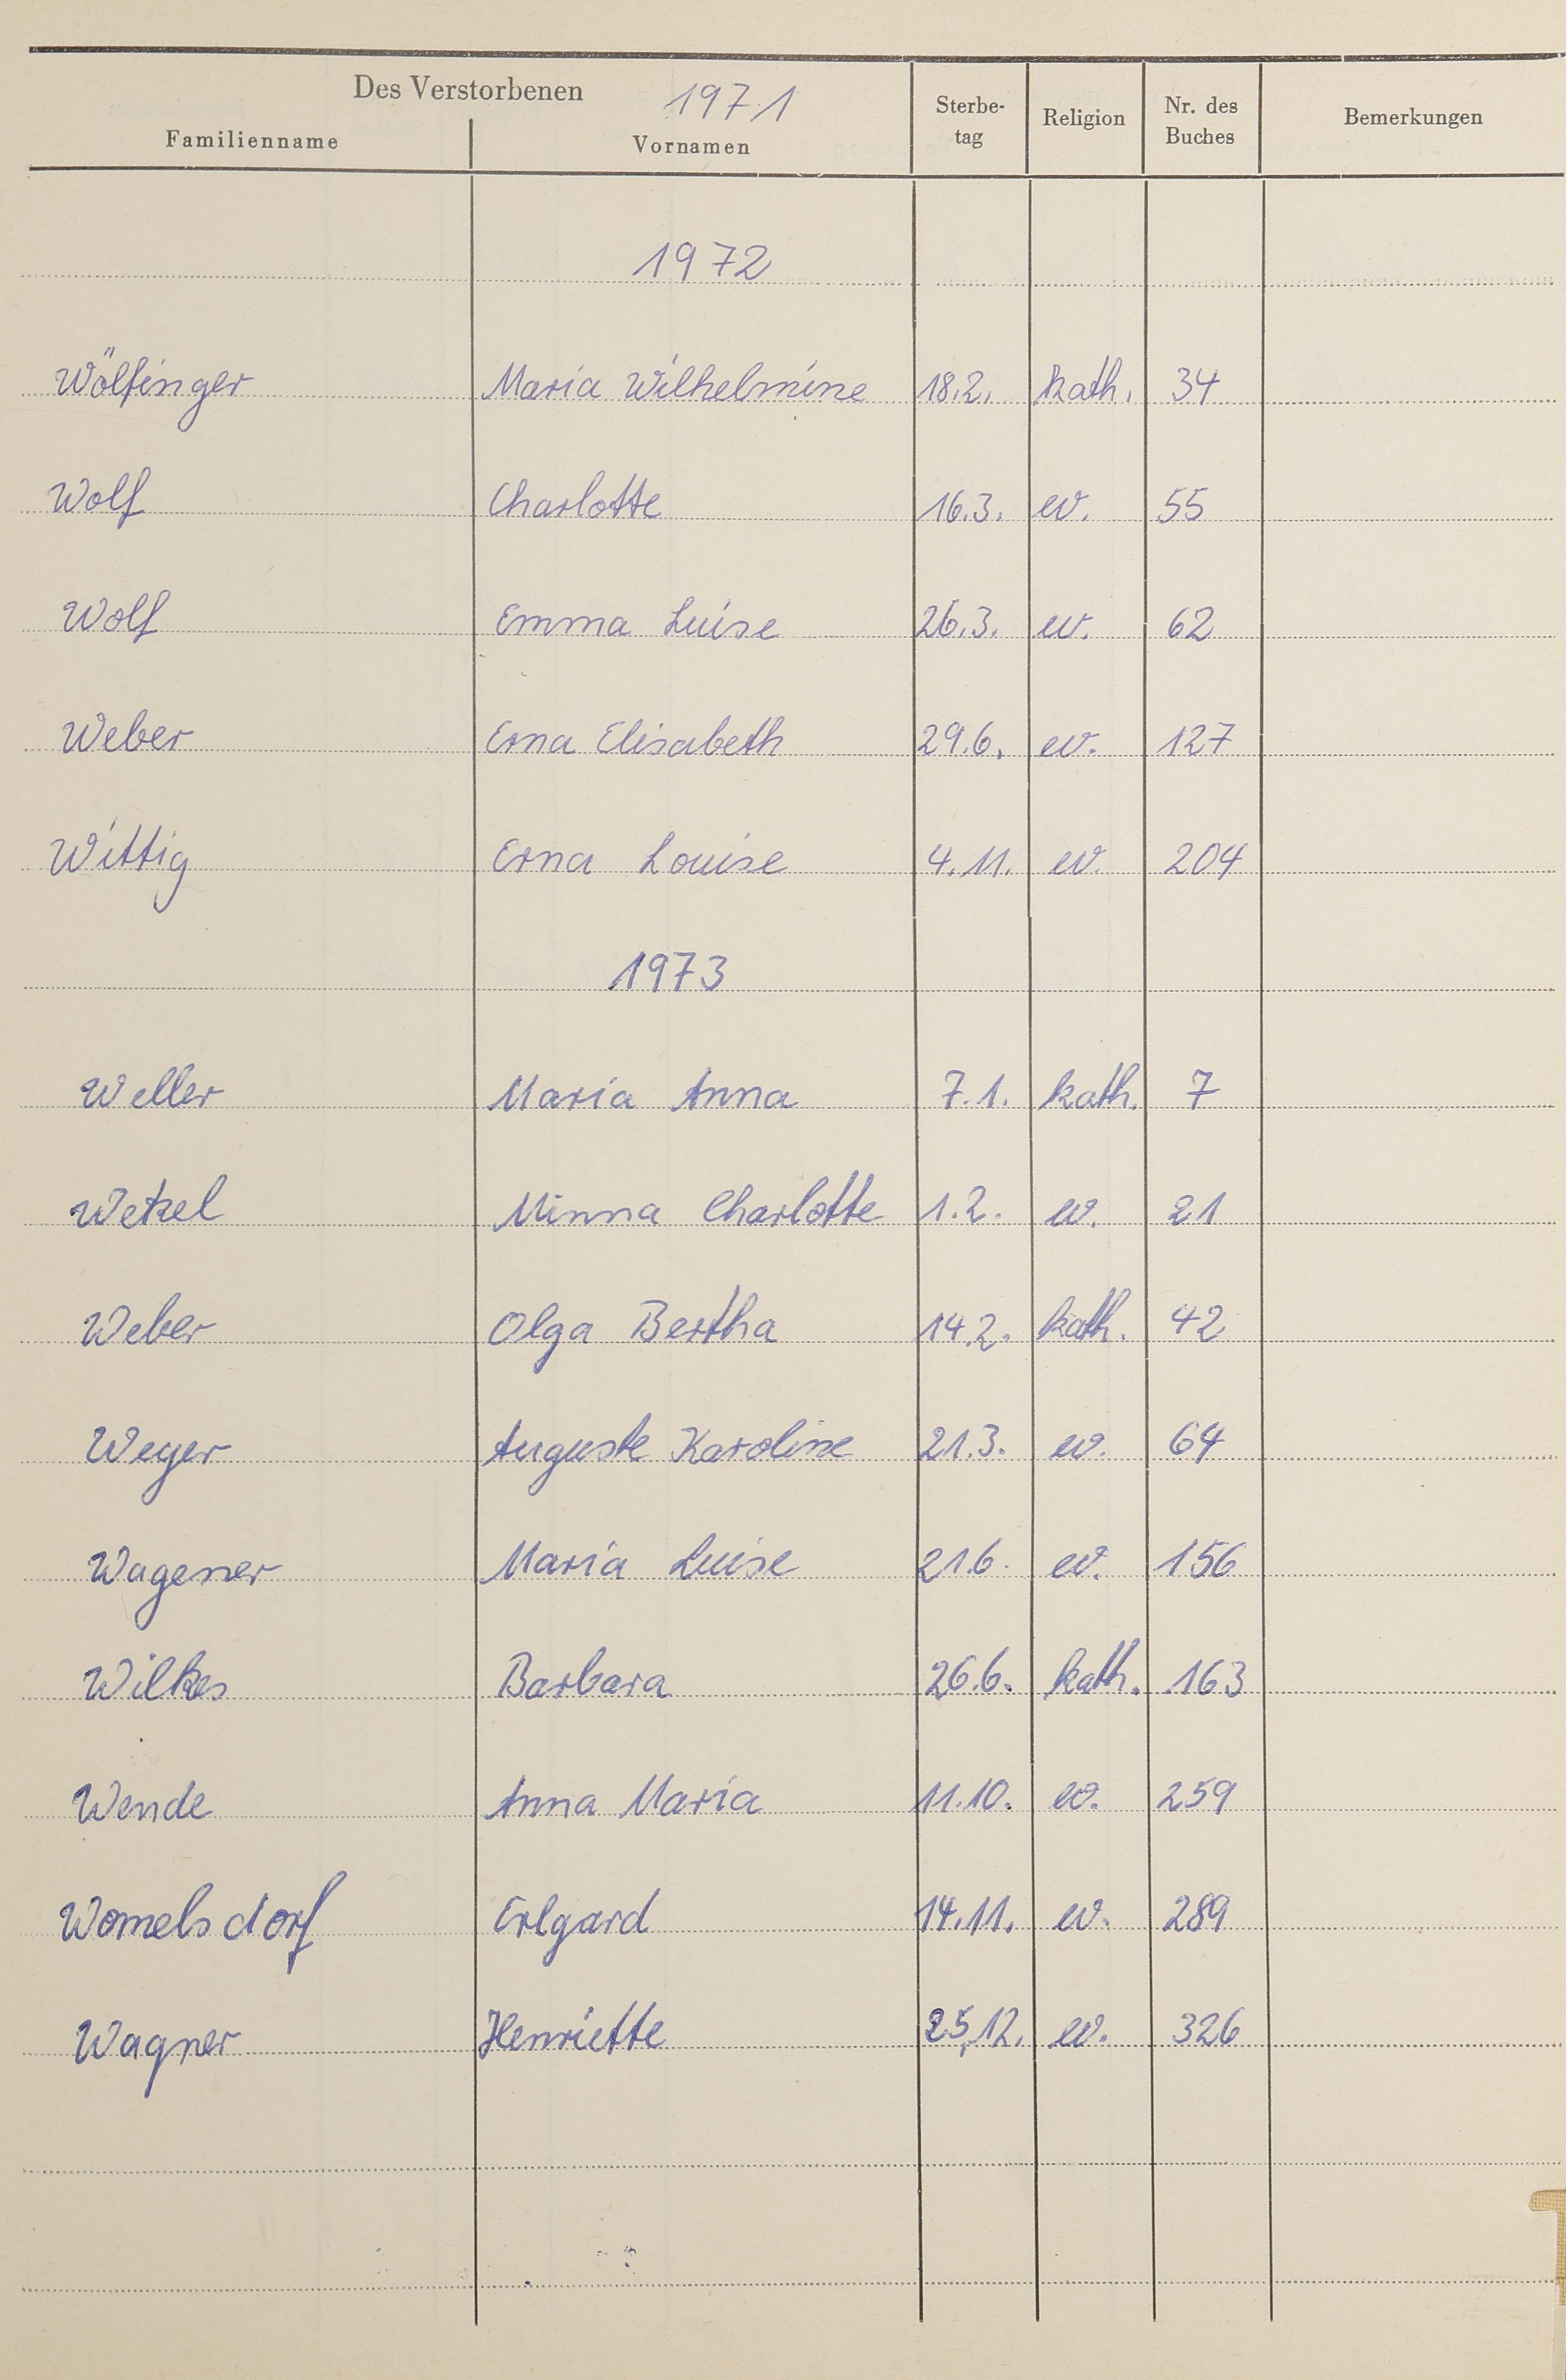 Des Verstorbenen 1971
Familienname Vornamen Sterbe-tag Religion Nr. des Buches Bemerkungen
1972
Wölfinger Maria Wilhelmine 18.2. kath. 34
Wolf Charlotte 16.3. ev. 55
Wolf Emma Luise 26.3. ev. 62
Weber Erna Elisabeth 29.6. ev. 127
Wittig Erna Louise 4.11. ev. 204
1973
Weller Maria Anna 7.1. kath. 7
Wetzel Minna Charlotte 1.2. ev. 21
Weber Olga Bertha 14.2. kath. 42
Weyer Auguste Karoline 21.3. ev. 64
Wagener Maria Luise 21.6. ev. 156
Wilkes Barbara 26.6. kath. 163
Wende Anna Maria 11.10. ev. 259
Womelsdorf Erlgard 14.11. ev. 289
Wagner Henriette 25.12. ev. 326